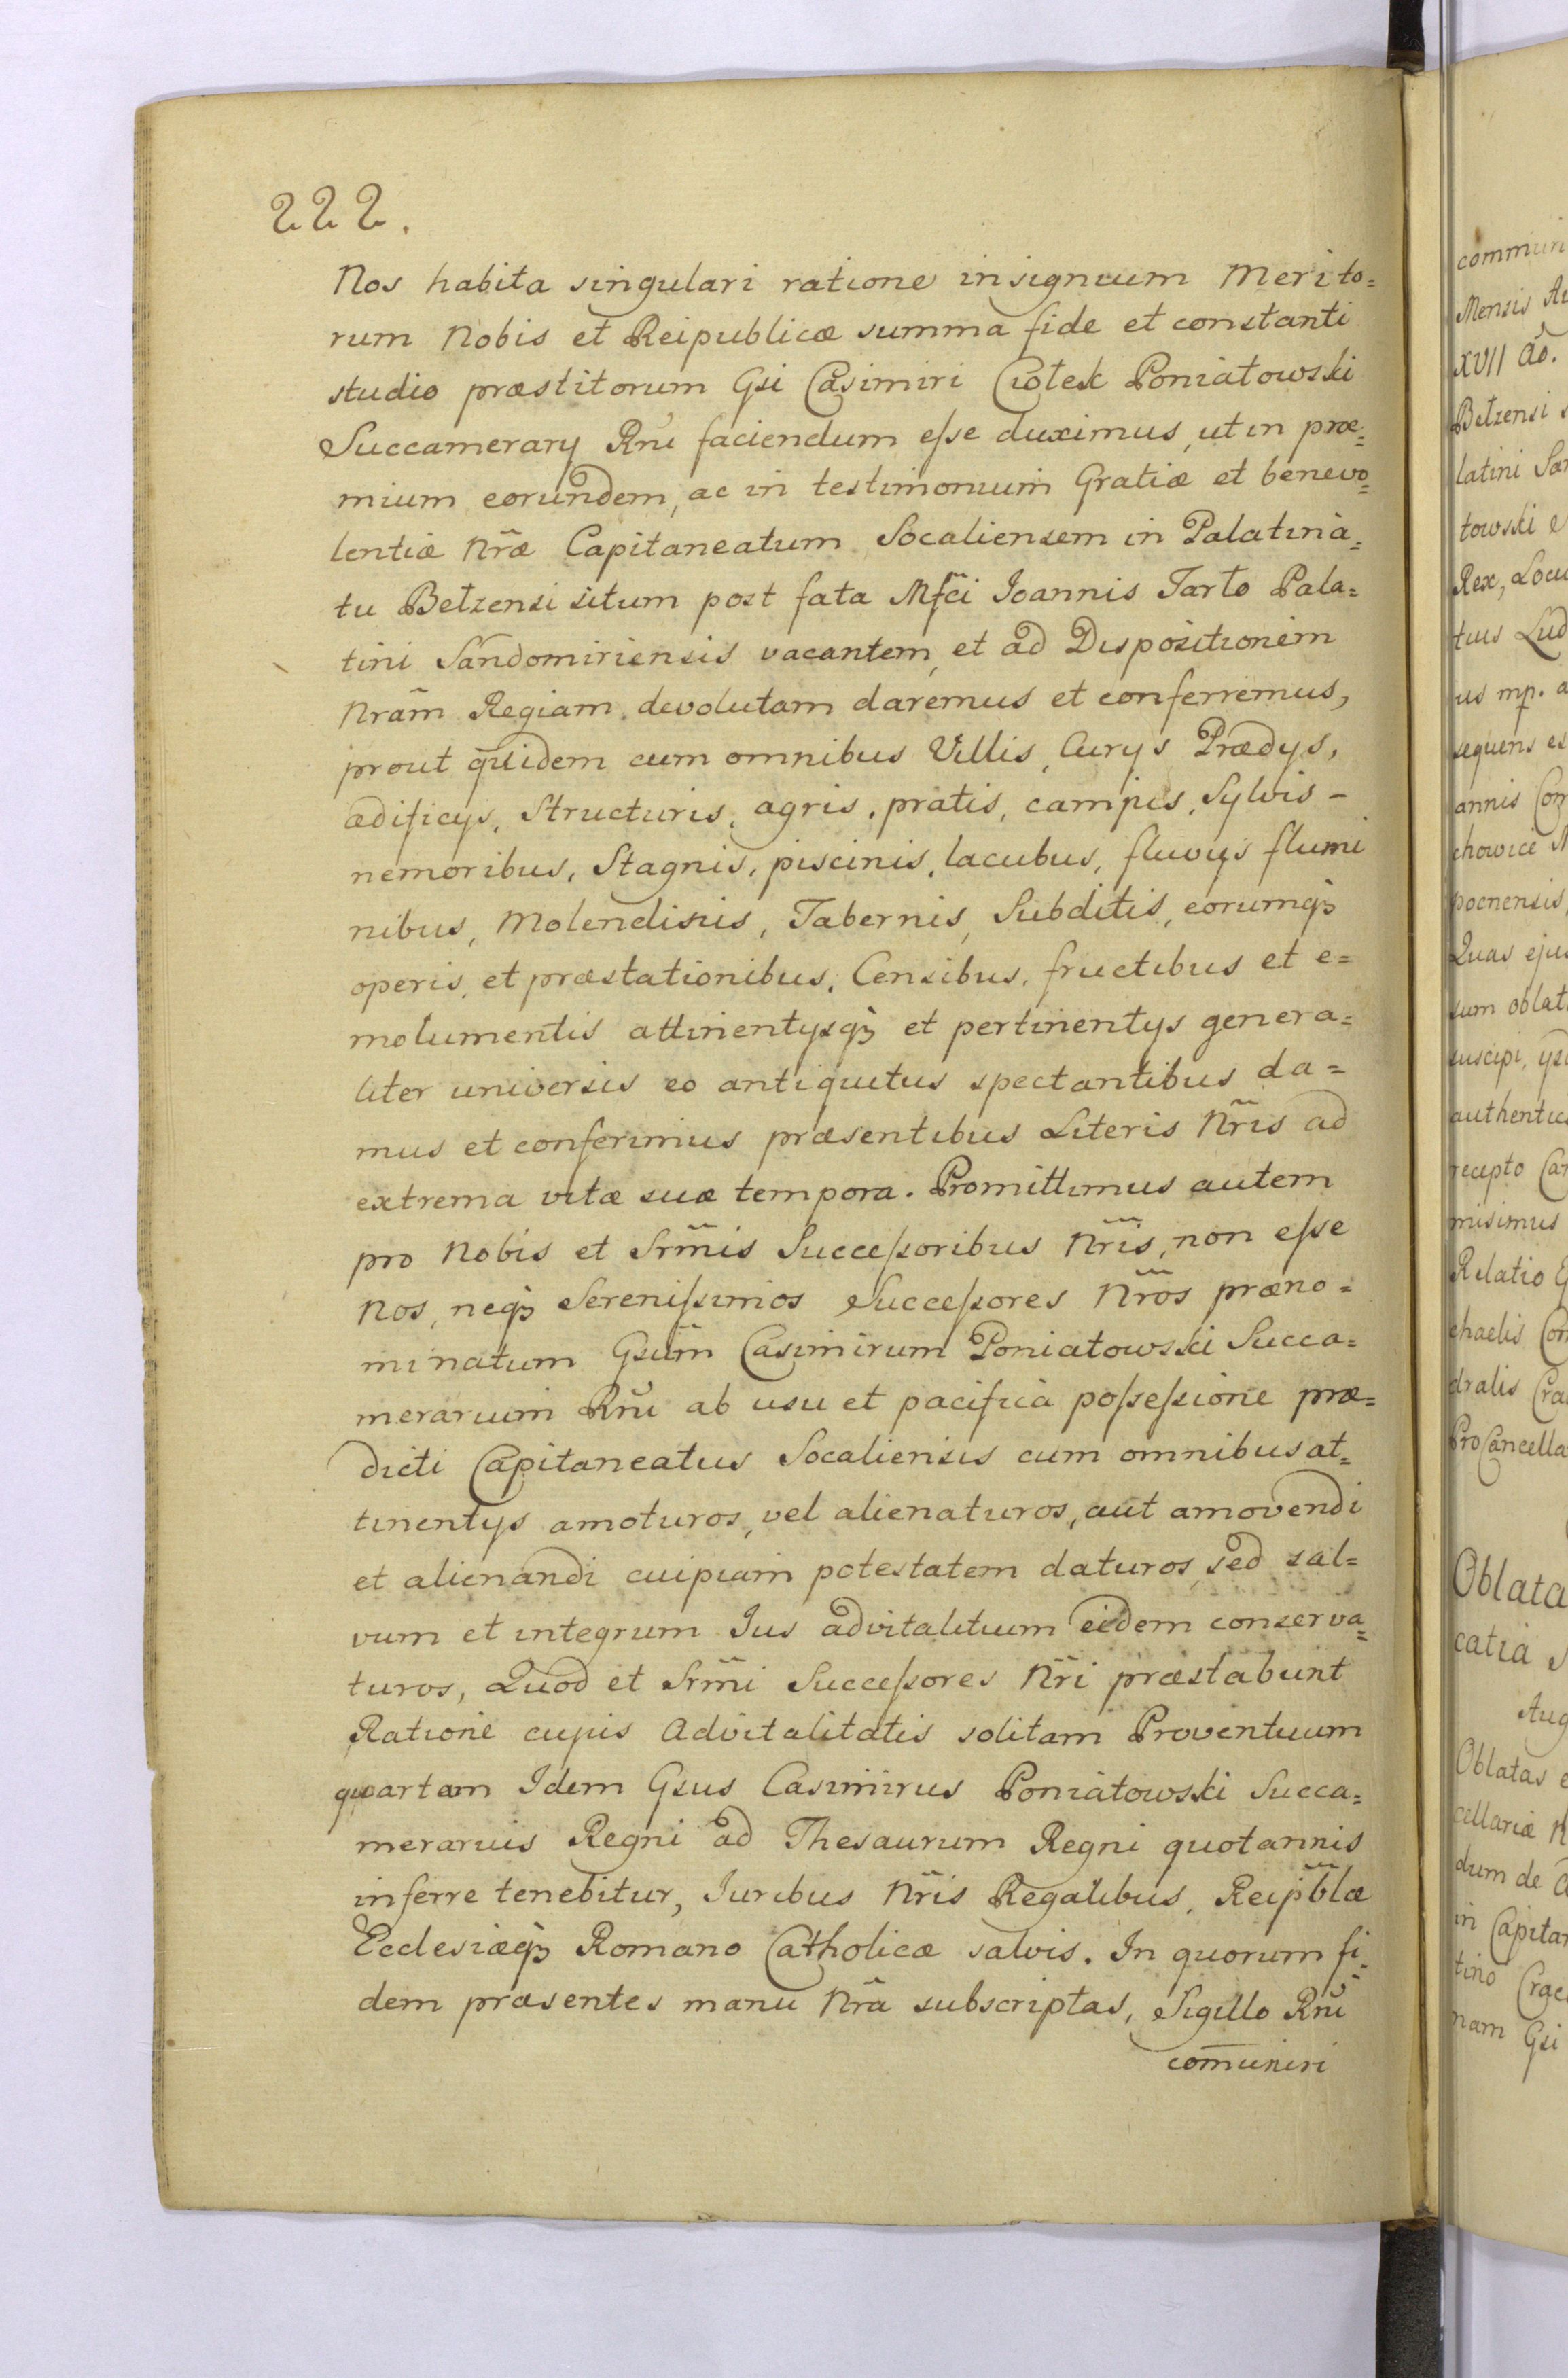 222.
Nos habita singulari ratione insignium Merito=
rum Nobis et Reipublicæ summa fide et constanti
studio præstitorum Gsi Casimiri Ciołek Poniatowski
Succamerarÿ Rñi faciendum eſse duximus, ut in præ=
mium eorundem, ac in testimonium Gratiæ et benevo=
lentiæ Nr̃æ Capitaneatum Socaliensem in Palatina=
tu Bełzensi situm post fata Mfc̃i Ioannis Tarło Pala=
tini Sandomiriensis vacantem, et ad Dispositionem
Nrãm Regiam devolutam daremus et conferremus,
prout quidem cum omnibus Villis, Curÿs Prædÿs,
ædificÿs, Structuris, agris, pratis, campis, Sylvis -
nemoribus, Stagnis, piscinis, lacubus, fluvÿs flumi
nibus, Molendinis, Tabernis, Subditis, eorumq̃
operis, et præstationibus, Censibus, fructibus et e=
molumentis attinentÿsq̃ et pertinentÿs genera=
liter universis eo antiquitus spectantibus da=
mus et conferimus præsentibus Literis Nr̃is ad
extrema vitæ suæ tempora. Promittimus autem
pro Nobis et Srm̃is Succeſsoribus Nr̃is, non eſse
Nos, neq̃ Sereniſsimos Succeſsores Nr̃os præno=
minatum Gsum̃ Casimirum Poniatowski Succa=
merarium Rñi ab usu et pacifica poſseſsione præ=
dicti Capitaneatus Socaliensis cum omnibus at=
tinentÿs amoturos, vel alienaturos, aut amovendi
et alienandi cuipiam potestatem daturos, sed sal=
vum et integrum Ius advitalitium eidem conserva=
turos, Quod et Srm̃i Succeſsores Nr̃i præstabunt
Ratione cujus Advitalitatis solitam Proventuum
quartam Idem Gsus Casimirus Poniatowski Succa=
merarius Regni ad Thesaurum Regni quotannis
inferre tenebitur, Iuribus Nr̃is Regalibus, Reip̃blæ
Ecclesiæq̃ Romano Catholicæ salvis. In quorum fi=
dem præsentes manu Nr̃a subscriptas, Sigillo Rñi
com̃uniri
communi
Mensis
XVII
Bełzensi
latini
towski
Rex,
us mp.
sequens
annis
chovice
pocnensis
Quas
sum
suscipi,
recepto
misimus
Relatio
chaelis
dralis
ProCancella
Oblata
catia
Aug
Oblatas
cellariæ
dum de
in Capita
tino
nam Gsi